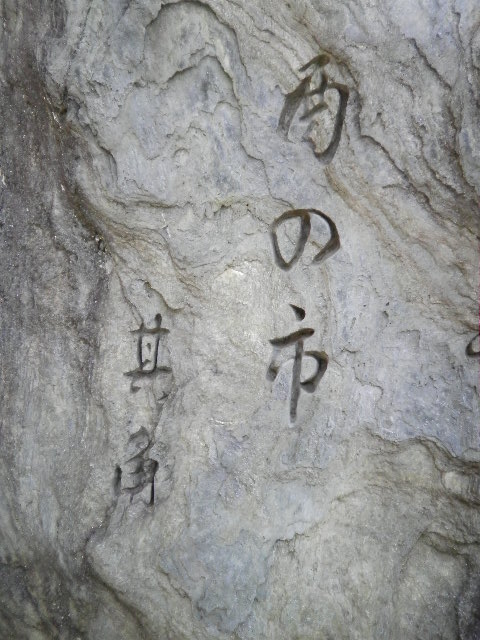 酉の市
其角